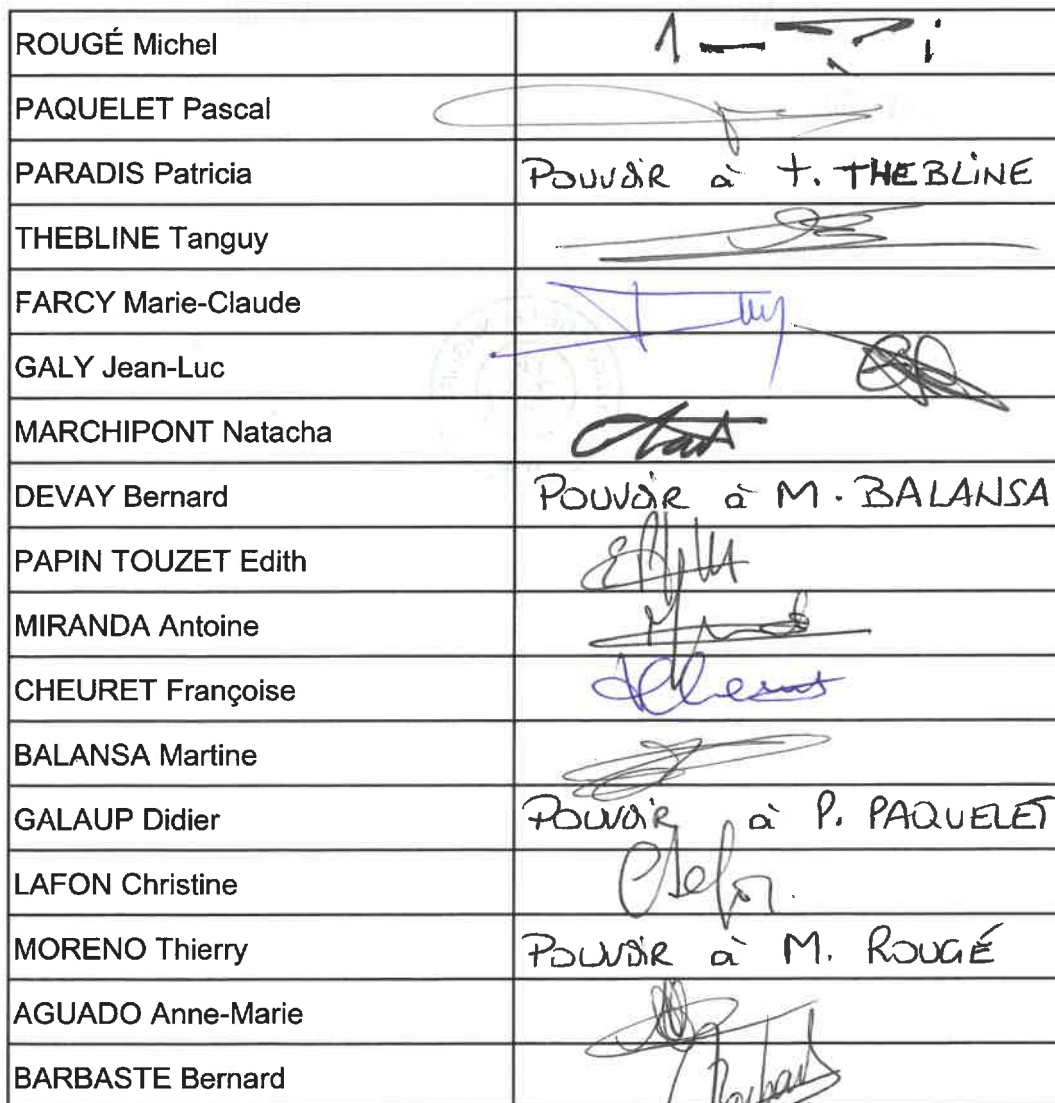 ROUGÉ Michel
PAQUELET Pascal
PARADIS Patricia POUVOIR à T. THEBLINE
THEBLINE Tanguy
FARCY Marie-Claude
GALY Jean-Luc
MARCHIPONT Natacha
DEVAY Bernard POUVOIR à M. BALANSA
PAPIN TOUZET Edith
MIRANDA Antoine
CHEURET Françoise
BALANSA Martine
GALAUP Didier POUVOIR à P. PAQUELET
LAFON Christine
MORENO Thierry POUVOIR à M. ROUGÉ
AGUADO Anne-Marie
BARBASTE Bernard